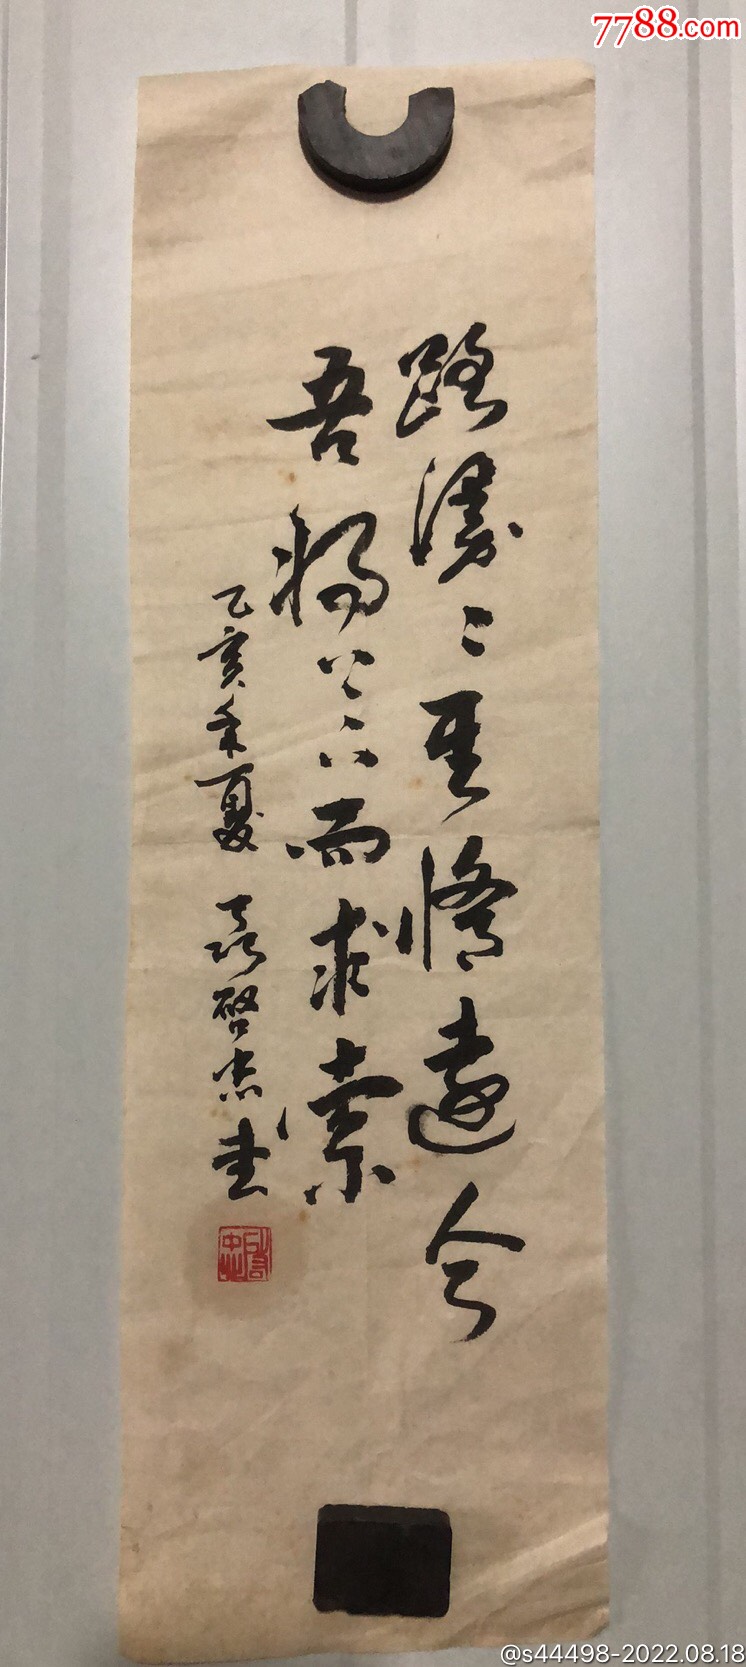 7788.com
路漫〻其脩遠兮
吾將上下而求索
乙亥年夏 聂啓忠书
啓忠
@s44498-2022.08.18